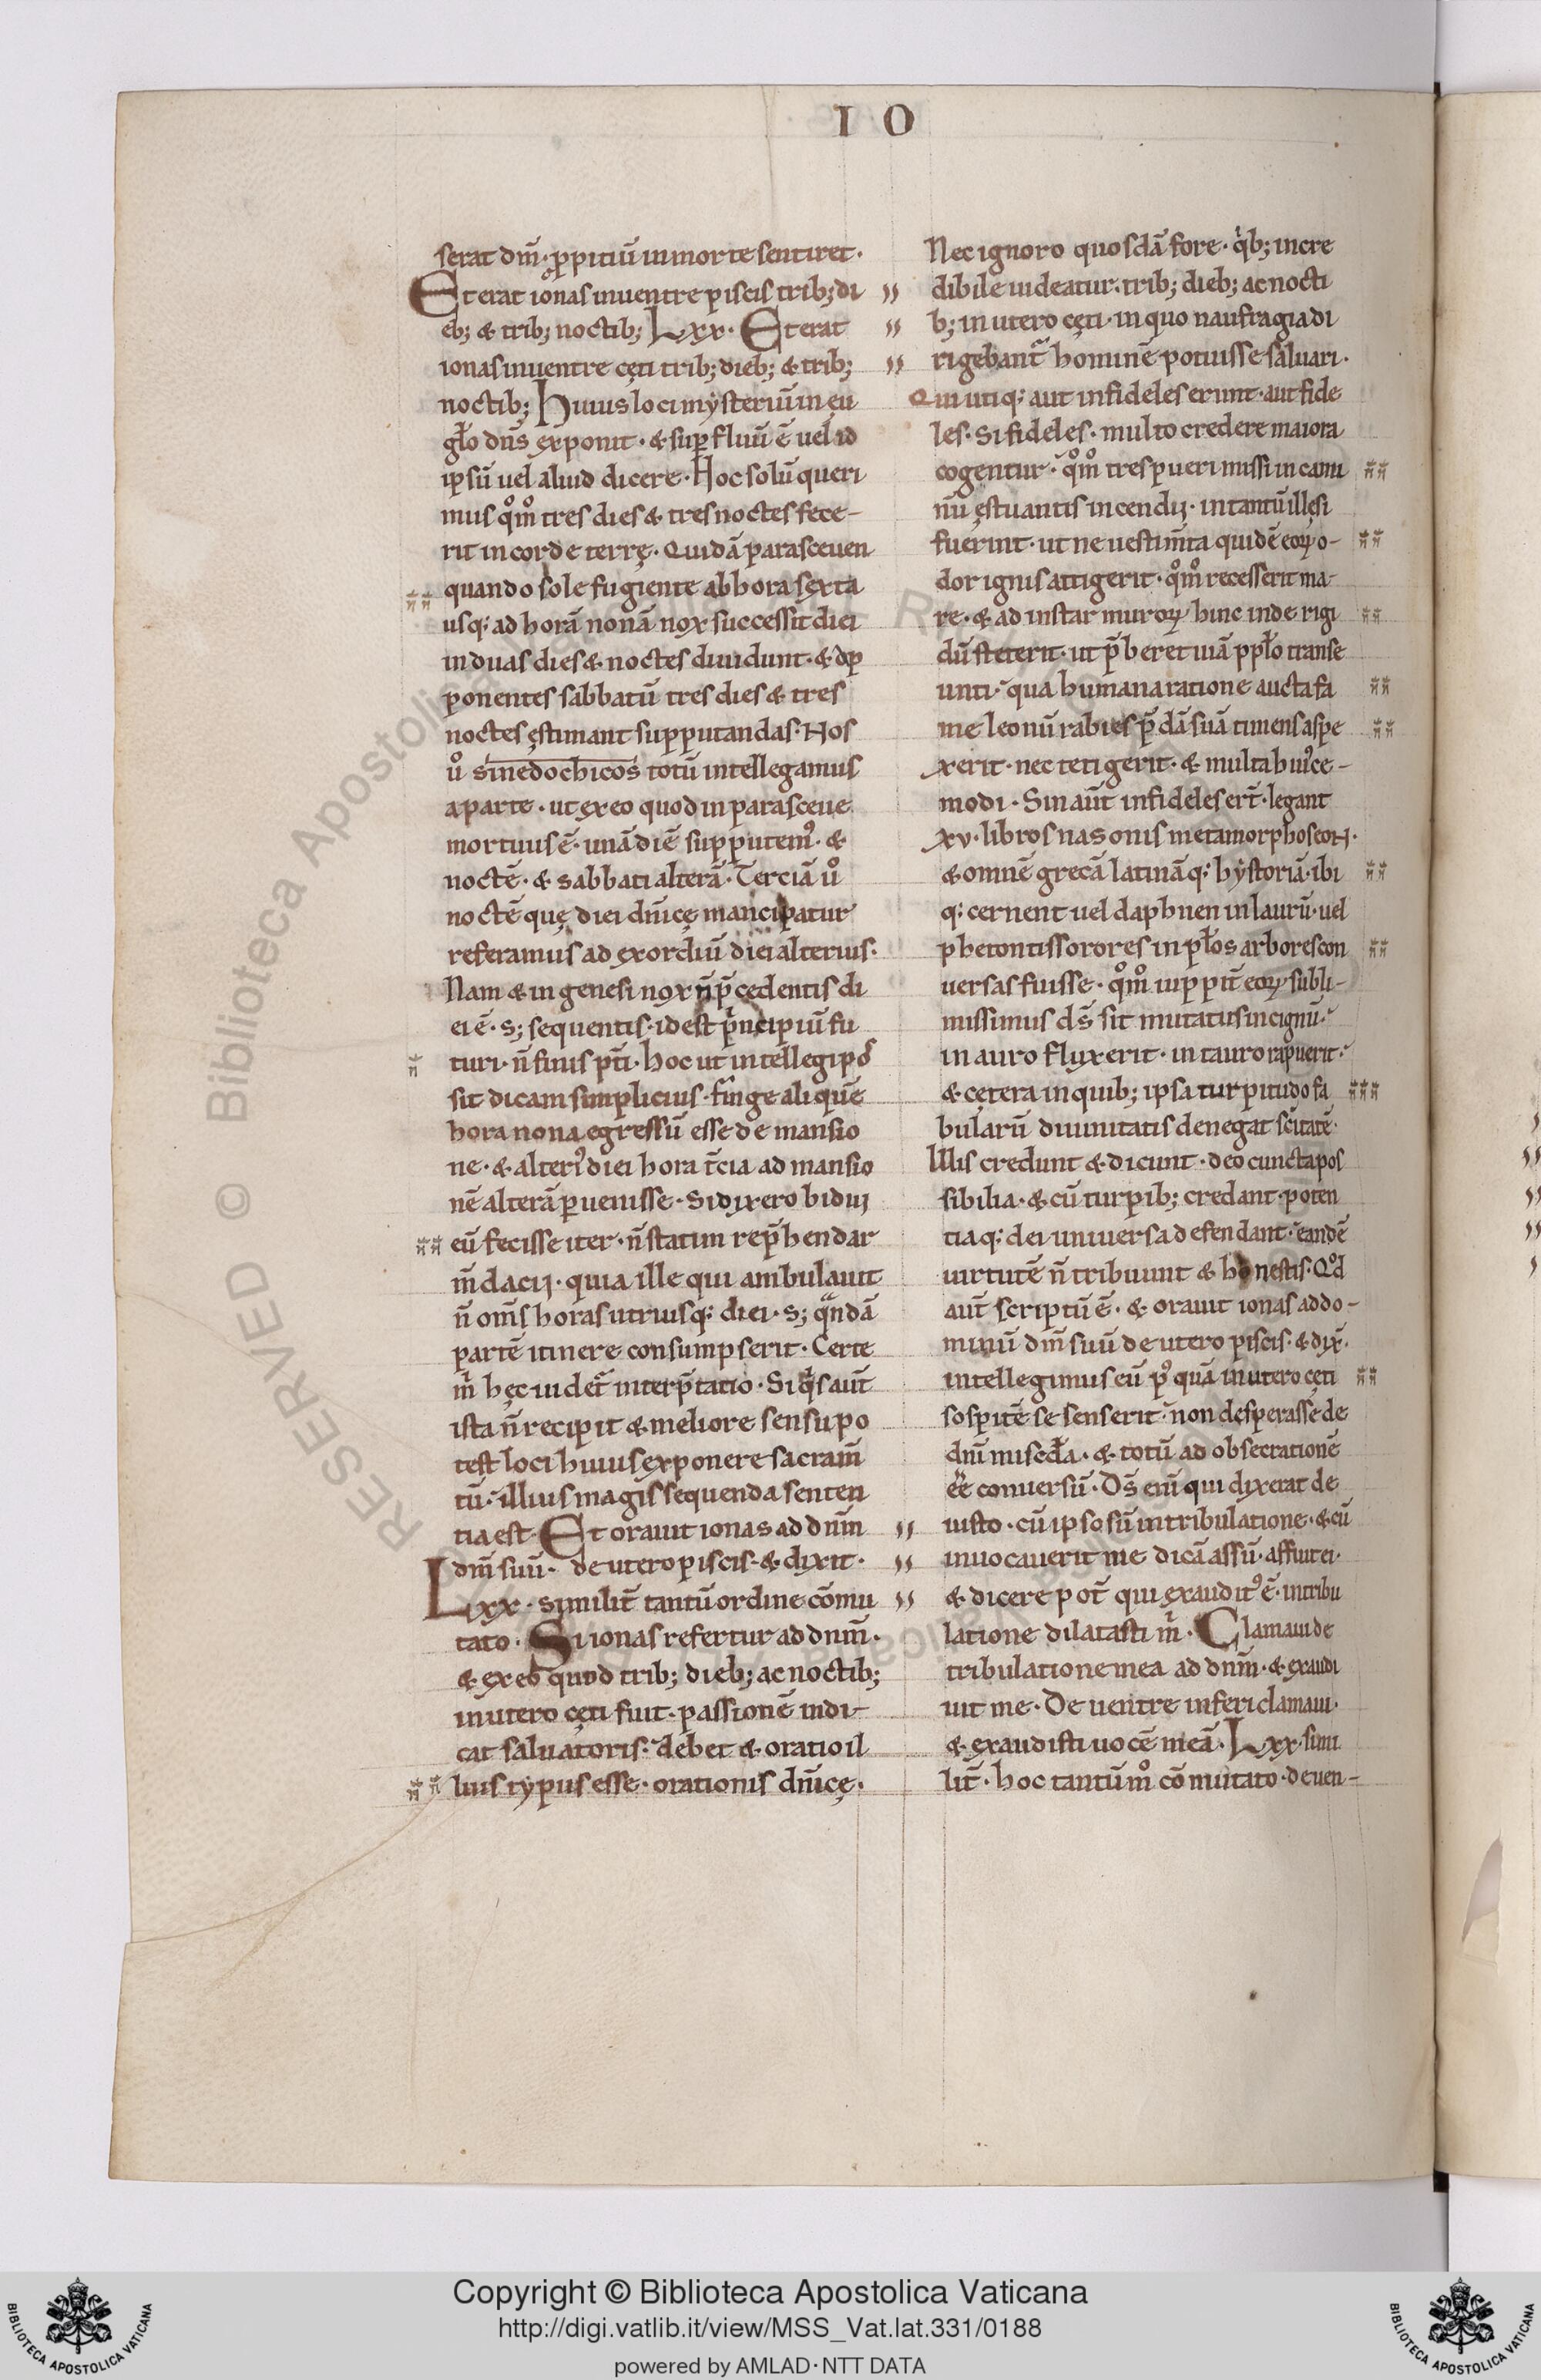 I O
serat dm̄· ꝓpitiū in morte sentiret·
Et erat ionas in uentre piscis trib; di
eb; & trib; noctib; Lxx· Et erat
ionas in uentre cęti trib; dieb; & trib;
noctib; Huius loci mysteriū in eu
gło dn̄s exponit· & suꝑfluū ē uel id
ipsū uel aliud dicere· Hoc solū queri
mus qm̊ tres dies & tres noctes fece-
rit in corde terrę· Quidā parasceuen
quando sole fugiente ab hora sexta
usq; ad horā nonā nox successit diei
in duas dies & noctes diuidunt· & ap
ponentes sabbatū tres dies & tres
noctes ęstimant supputandas· Nos
ů sinedochicos totū intellegamus
a parte· ut ex eo quod in parasceue
mortuus ē· unā diē supputem᷒· &
noctē· & sabbati alterā· Terciā ů
noctē quę diei dn̄icę mancipatur
referamus ad exordiū diei alterius·
Nam & in genesi nox n̄ p̄cedentis di
ei ē· s; sequentis· id est pncipiū fu
turi· n̄ finis p̄ti· hoc ut intellegi pos
sit dicam simplicius· finge aliquē
hora nona egressū esse de mansio
ne· & alteri᷒ diei hora t̄cia ad mansio
nē alterā ꝑuenisse· Si dixero bidui
eū fecisse iter· n̄ statim rep̄hendar
m̄dacij· quia ille qui ambulauit
n̄ om̄s horas utriusq; diei· s; qͣndā
partē itinere consumpserit· Certe
m̍ hęc uidet᷑ interp̄tatio· Siq̍s aut̄
ista n̄ recipit & meliore sensu po
test loci huius exponere sacram̄
tū· illius magis sequenda senten
tia est· Et orauit ionas ad dn̄m
dm̄ suū· de utero piscis· & dixit·
Lxx· similit̄ tantū ordine cōmu
tato· Si ionas refertur ad dn̄m·
& ex eo quod trib; dieb; ac noctib;
in utero cęti fuit· passionē indi-
cat saluatoris· debet & oratio il
lius typus esse· orationis dn̄icę·
Nec ignoro quosdā fore· q̍b; incre
dibile uideatur· trib; dieb; ac nocti
b; in utero cęti· in quo naufragia di
rigebant᷑ hominē potuisse saluari·
Qui utiq; aut infideles erunt· aut fide
les· Si fideles· multo credere maiora
cogentur· qm̊ tres pueri missi in cami
nū ęstuantis incendij· in tantū illęsi
fuerint· ut ne uestim̄ta quidē eoꝝ o-
dor ignis attigerit· qm̊ recesserit ma-
re· & ad instar muroꝝ hinc inde rigi
dū steterit· ut p̄beret uiā ppło transe
unti· qua humana ratione aucta fa
me leonū rabies p̄dā suā timens aspe
xerit· nec tetigerit· & multa hui᷒ce-
modi· Sin aut̄ infideles ert̄· legant
xv· libros nasonis metamorphoseon·
& omnē grecā latināq; hystoriā· ibi
q; cernent uel daphnen in laurū· uel
phetontis sorores in płos arbores con
uersas fuisse· qm̊ iuppit̄ eoꝝ subli-
missimus ds̄ sit mutatus in cignū·
in auro fluxerit· in tauro rapuerit·
& cętera in quib; ipsa turpitudo fa
bularū diuinitatis denegat sc̄itatē·
Illis credunt & dicunt· deo cuncta pos
sibilia· & cū turpib; credant· poten
tiaq; dei uniuersa defendant· eandē
uirtutē n̄ tribuunt & honestis· Qd̊
aut̄ scriptū ē· & orauit ionas ad do-
minū dm̄ suū de utero piscis· & dix̄·
intellegimus eū p᷒ quā in utero cęti
sospitē se senserit· non desperasse de
dn̄i miscd̄a· & totū ad obsecrationē
ee̅ conuersū· Ds̄ eni̅ qui dixerat de
iusto· cū ipso sū in tribulatione· & cū
inuocauerit me dicā assū· affuit ei·
& dicere pot̄ qui exaudit᷒ ē· in tribu
latione dilatasti m̍· Clamaui de
tribulatione mea ad dn̄m· & exaudi
uit me· De uentre inferi clamaui·
& exaudisti uocē meā· Lxx· simi
lit̄· hoc tantūm̊ cōmutato· de uen-
RESERVED © Biblioteca Apostolica
Copyright © Biblioteca Apostolica Vaticana
http://digi.vatlib.it/view/MSS_Vat.lat.331/0188
powered by AMLAD·NTT DATA
BIBLIOTECA APOSTOLICA VATICANA
BIBLIOTECA APOSTOLICA VATICANA